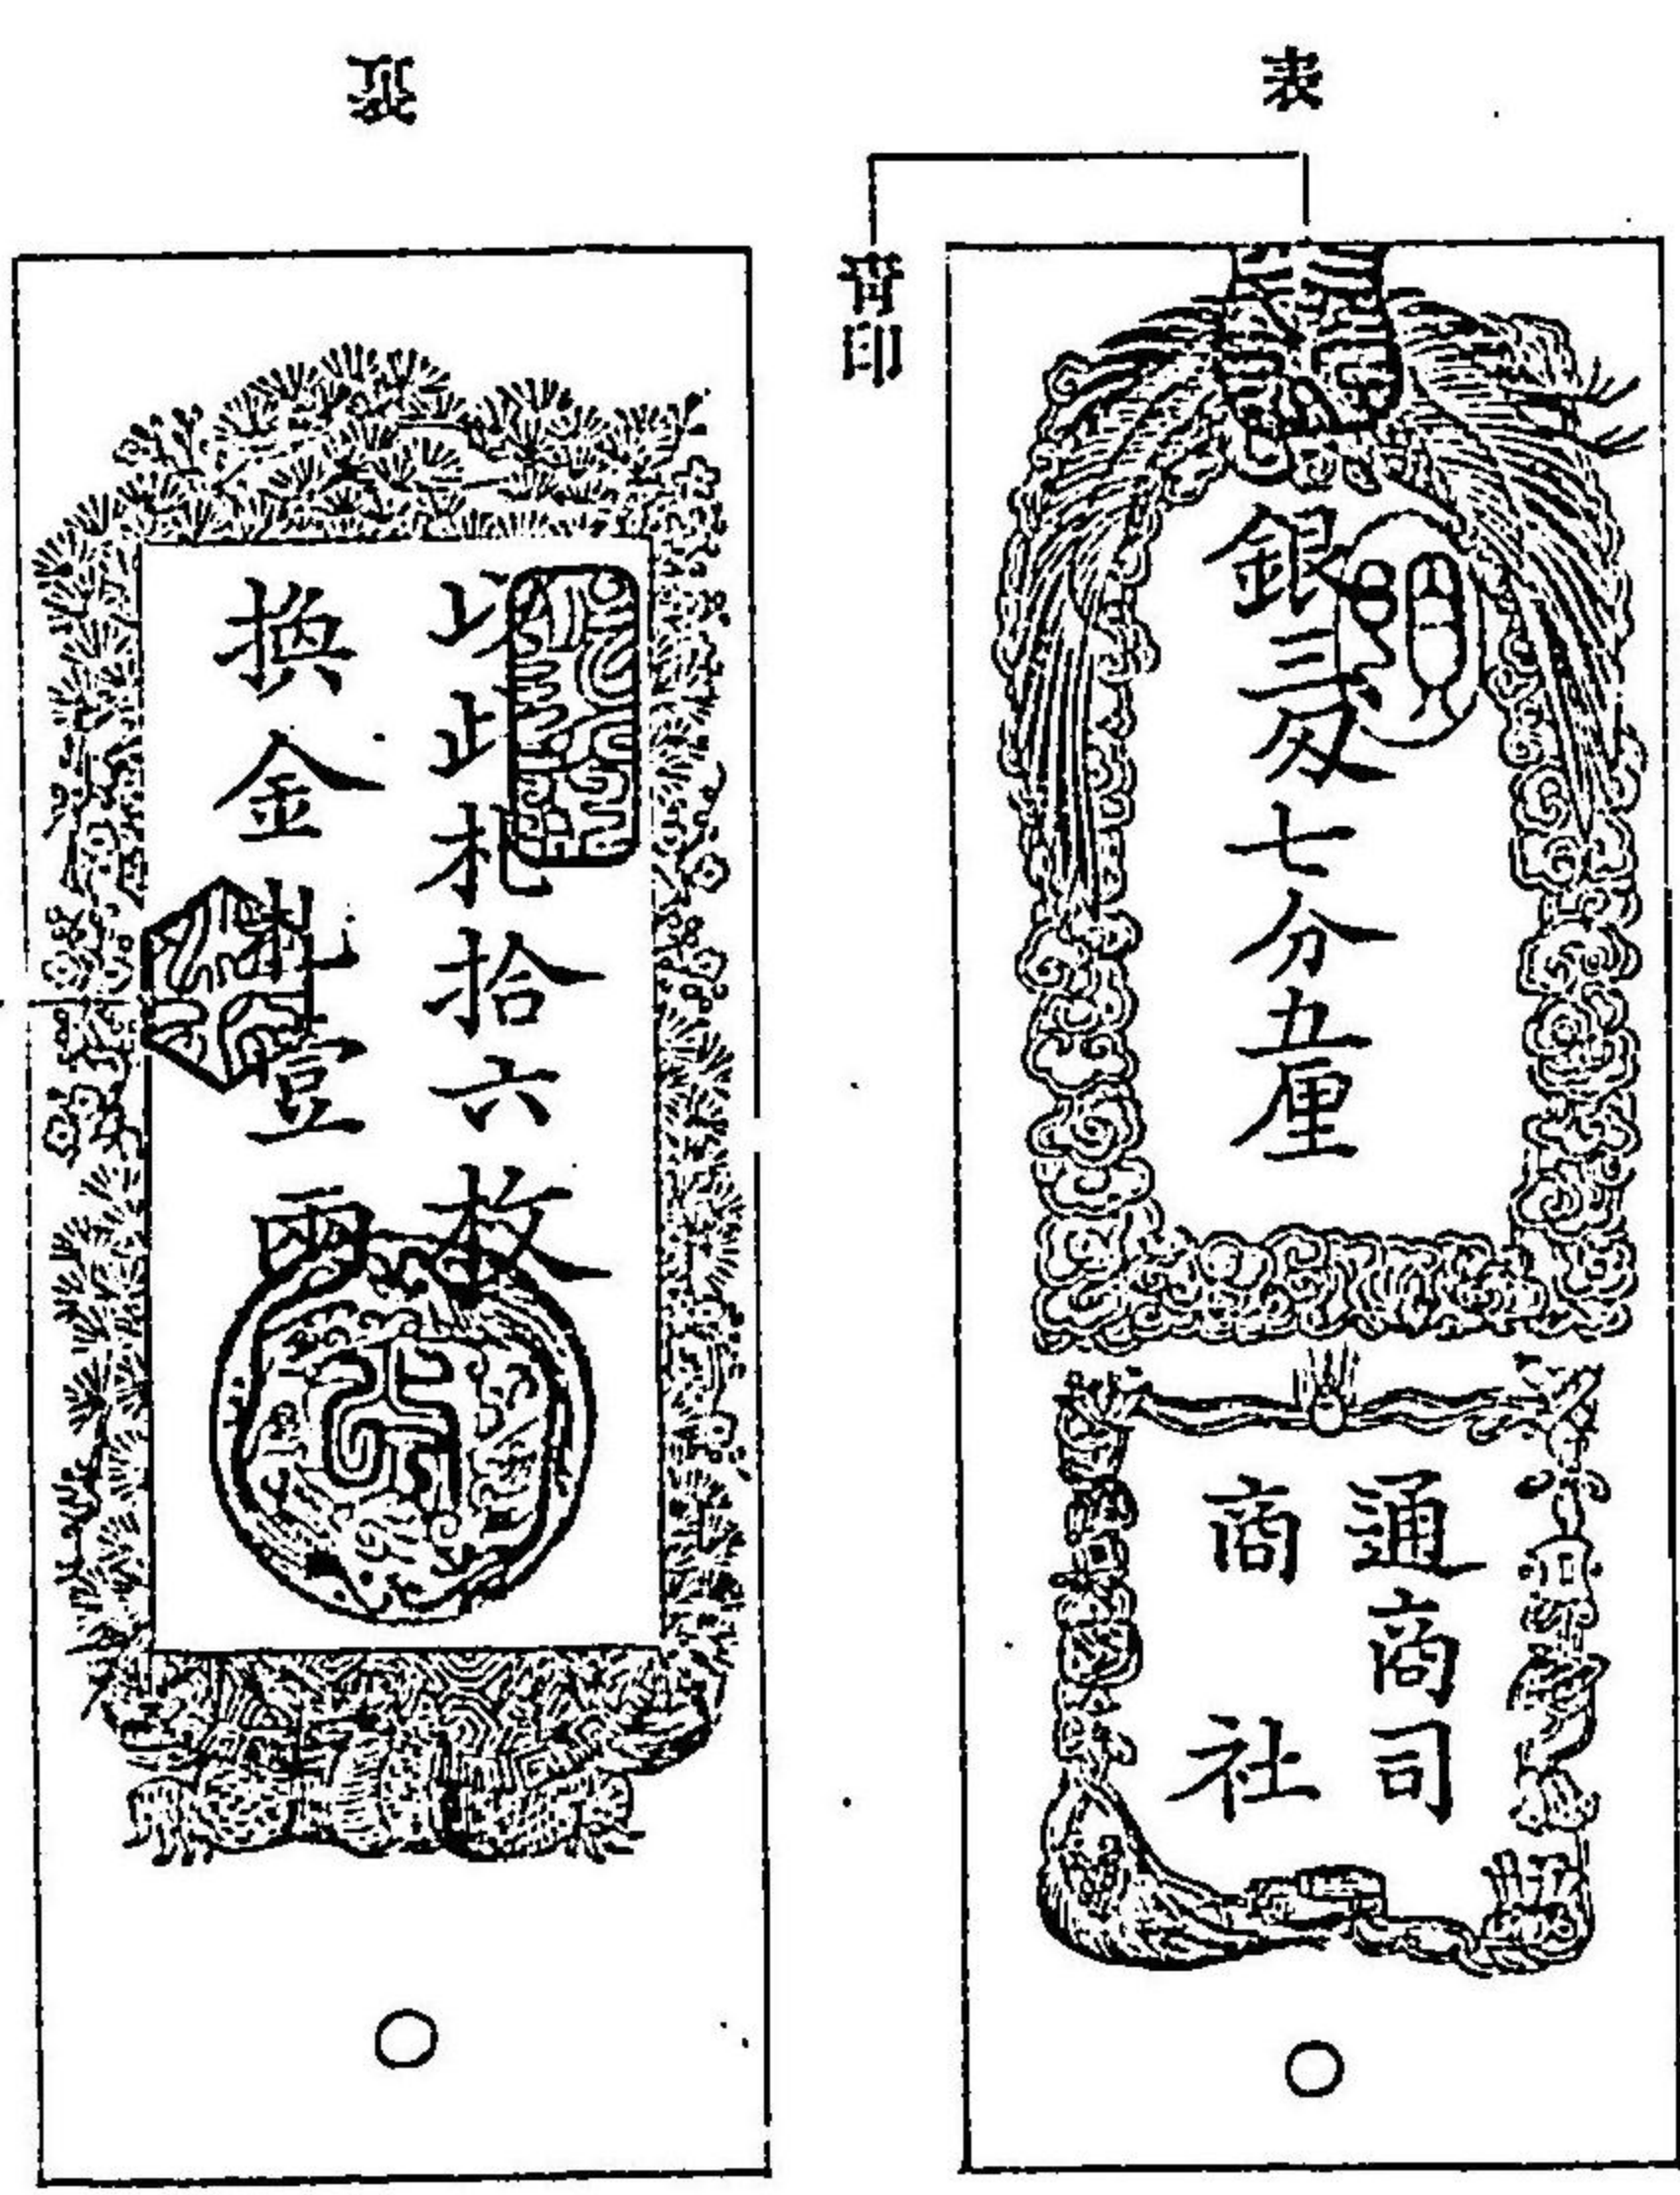 表
背印
銀三匁七分五厘
通商司
商社
裏
以此札拾六枚
換金札壹兩